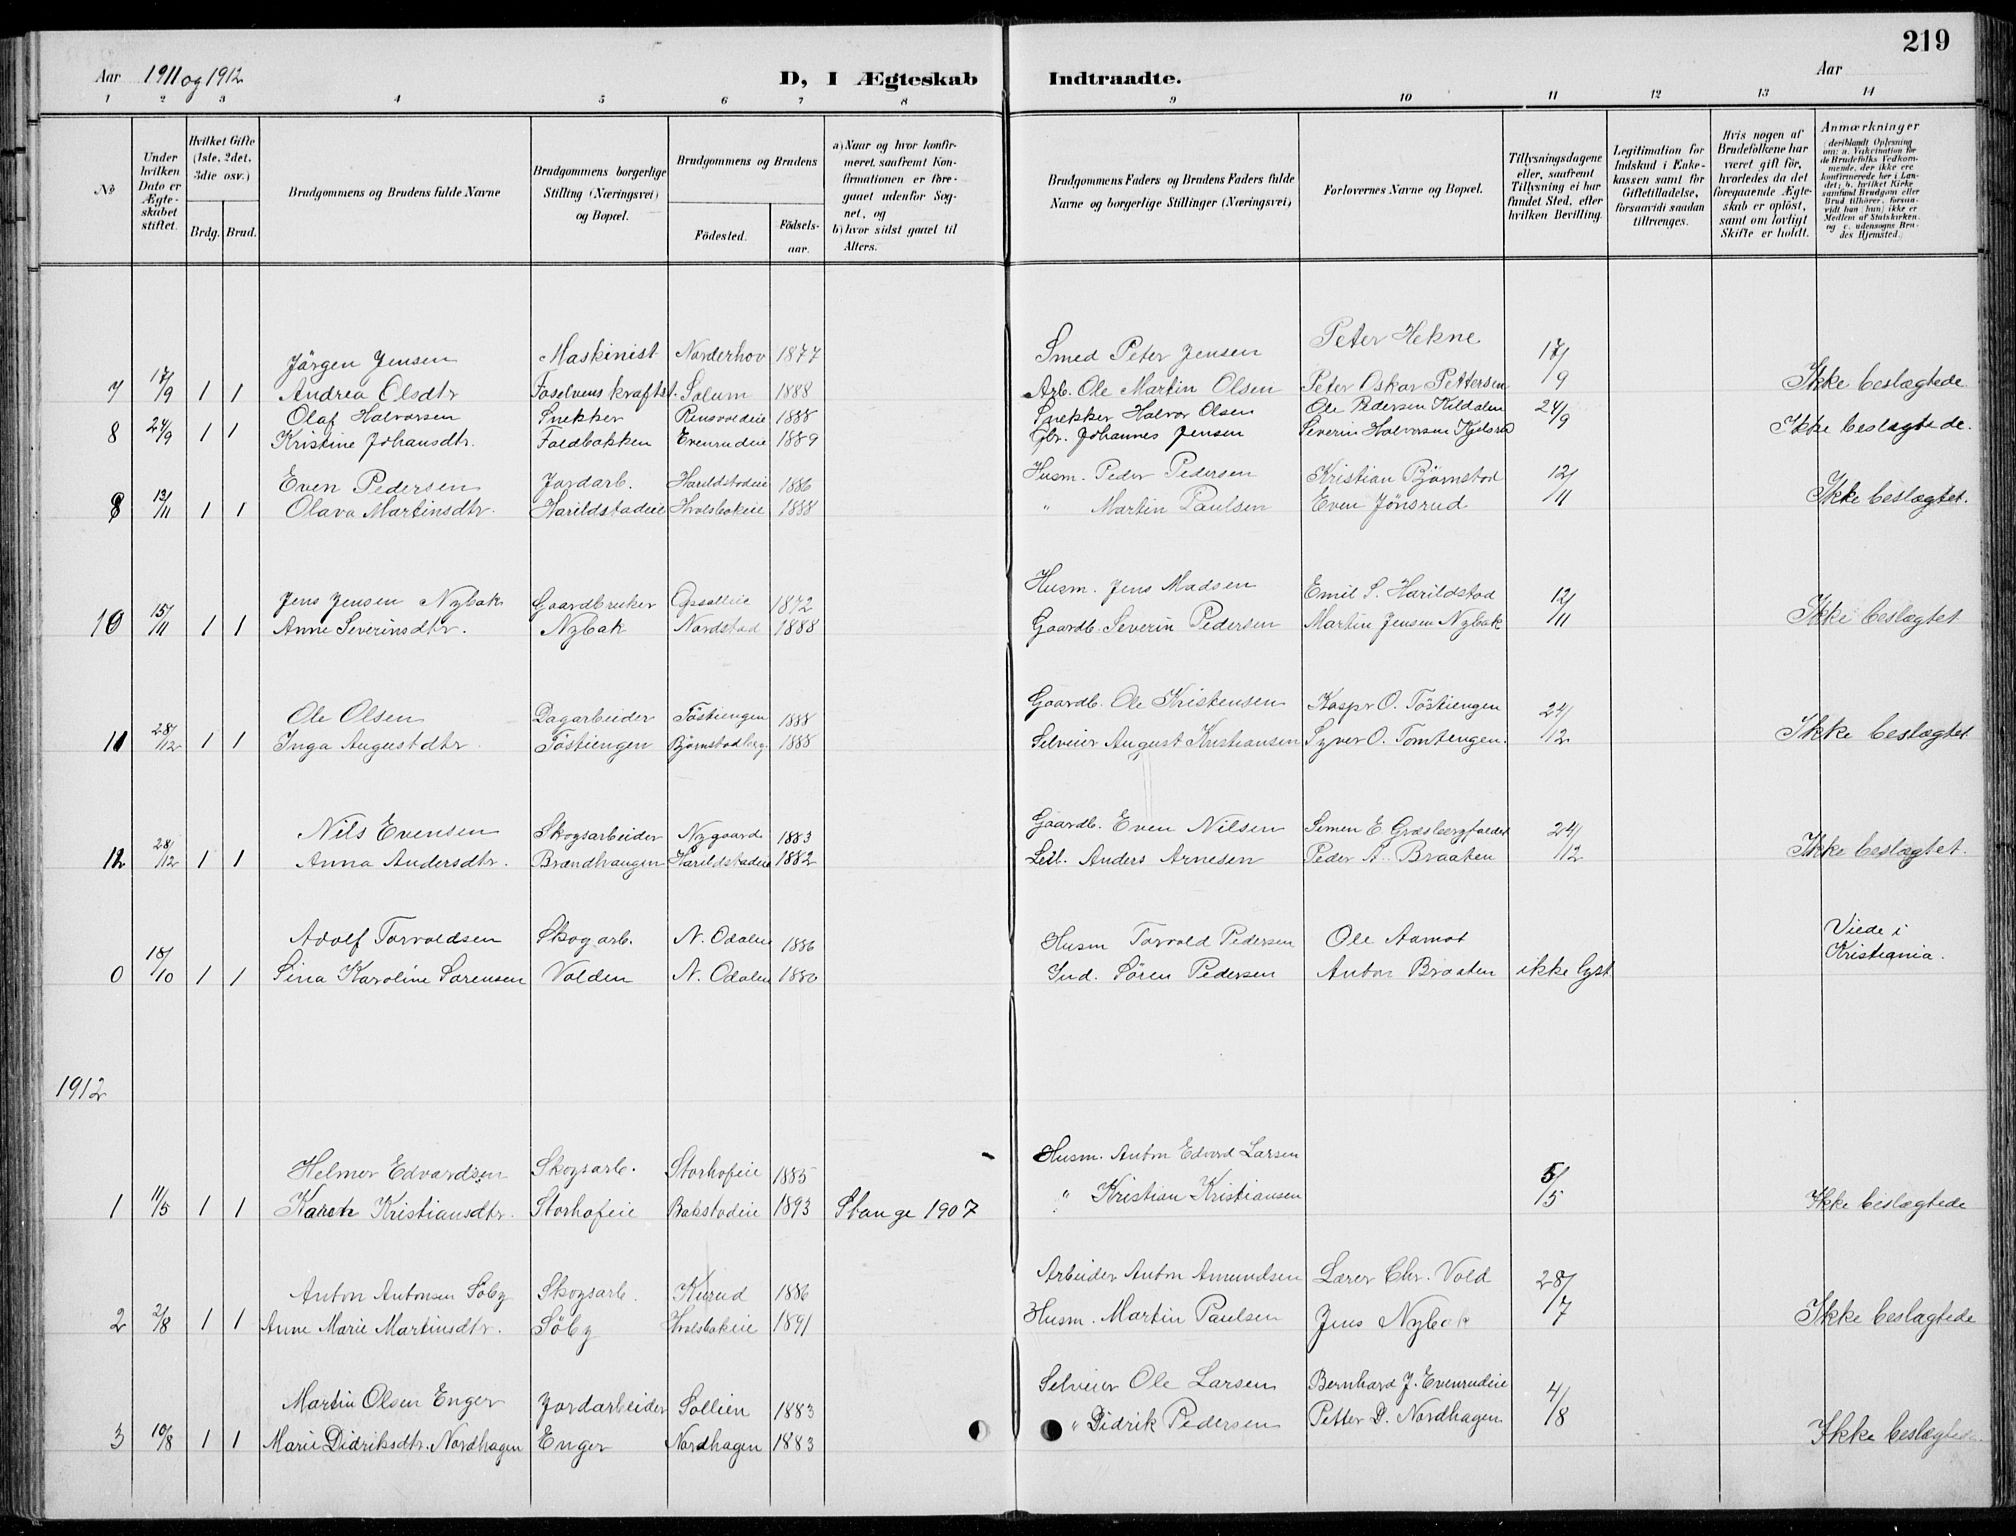 219
Aar 1911 og 1912
D, I Ægteskab Indtraadte.
Aar
1 2 3 4 5 6 7 8 9 10 11 12 13 14
No
Under hvilken Dato er Ægteskabet stiftet.
Hvilket Gifte (1ste, 2det, 3die osv.)
Brdg. Brud.
Brudgommens og Brudens fulde Navne
Brudgommens borgerlige Stilling (Næringsvei) og Bopæl.
Brudgommens og Brudens
Födested. Födselsaar.
a) Naar og hvor konfirmeret, saafremt Konfirmationen er foregaaet udenfor Sognet, og
b) hvor sidst gaaet til Alters.
Brudgommens Faders og Brudens Faders fulde Navne og borgerlige Stillinger (Næringsvei)
Forlovernes Navne og Bopæl.
Tillysningsdagene eller, saafremt Tillysning ei har fundet Sted, efter hvilken Bevilling.
Legitimation for Indskud i Enkekassen samt for Giftetilladelse, forsaavidt saadan tiltrænges.
Hvis nogen af Brudefolkene har været gift för, hvorledes da det foregaaende Ægteskab er oplöst, samt om lovligt Skifte er holdt.
Anmærkninger (deriblandt Oplysning om: a. Vakcination for de Brudefolks Vedkommende, der ikke ere konfirmerede her i Landet; b. hvilket Kirkesamfund Brudgom eller Brud tilhörer, forsaavidt han (hun) ikke er Medlem af Statskirken, og c. udensogns Brudes Hjemsted.)
Jörgen Jensen Maskinist Norderhov 1877 Smed Peter Jensen Peter Hekne 17/
7 17/9 1 1 Andrea Olsdtr Solum 1888 Arb. Ole Martin Olsen Peter Oskar Pettersen 9 Ikke beslægtede
Olaf Halvorsen Snekker Rensvoldeie 1888 Snekker Halvor Olsen Ole Pedersen Kildalen 24/
8 24/9 1 1 Kristine Johansdtr. Faldbakken Evenrudeie 1889 Gbr. Johannes Jensen Severin Halvorsen 9 Ikke beslægtede.
Even Pedersen Jordarb. Harildstadeie 1886 Husm. Peder Pedersen Kristian Björnstad 12/
13/11 1 1 Olava Martinsdtr. Harildstadeie Hvalsbakeie 1888 " Martin Paulsen Even Jönsrud 11 Ikke beslægtet.
Jens Jensen Nybak Gaardbruker Opsalleie 1872 Husm. Jens Madsen Emil S. Harildstad 12/
10 15/11 1 1 Anne Severinsdtr. Nybak Nordstad 1888 Gaardb. Severin Pedersen Martin Jensen Nybak 11 Ikke beslægtet
Ole Olsen Dagarbeider Töstiengen 1888 Gaardb. Ole Kristensen Kaspr O. Töstiengen 24/
11 28/12 1 1 Inga Augustdtr. Töstiengen Björnstadberg. 1888 Selveier August Kristiansen Syver O. Tomtengen. 12 Ikke beslægtet
Nils Evensen Skogsarbeider Nygaard 1883 Gaardb. Even Nilsen Simen E. Græsbergfaldet 24/
12 28/12 1 1 Anna Andersdtr. Brændhaugen Harildstadeie 1882 Leil. Anders Arnesen Peder A. Braaten 12 Ikke beslægtet.
Adolf Torvaldsen Skogarb. N. Odalen 1886 Husm Torvald Pedersen Ole Aamot Viede i
0 18/10 1 1 Sina Karoline Sørensen Volden N. Odalen 1880 Ind. Sören Pedersen Anton Braaten ikke lyst Kristiania.
1912
Helmer Edvardsen Skogsarb. Storhofeie 1885 Husm. Anton Edvard Larsen 5/
1 11/5 1 1 Karen Kristiansdtr. Storhofeie Bakstadeie 1893 Stange 1907 " Kristian Kristiansen 5 Ikke beslægtede
Anton Antonsen Söby Skogsarb. Kurud 1886 Arbeider Anton Amundsen Lærer Chr. Vold 28/
2 2/8 1 1 Anne Marie Martinsdtr. Söby Hvalsbakeie 1891 Husm. Martin Paulsen Jens Nybak 7 Ikke beslægtede
Martin Olsen Enger Jordarbeider Sollien 1883 Selveier Ole Larsen Bernhard J. Evenrudeie 4/
3 10/8 1 1 Marie Didriksdtr. Nordhagen Enger Nordhagen 1883 " Didrik Pedersen Petter D. Nordhagen 8 Ikke beslægtede